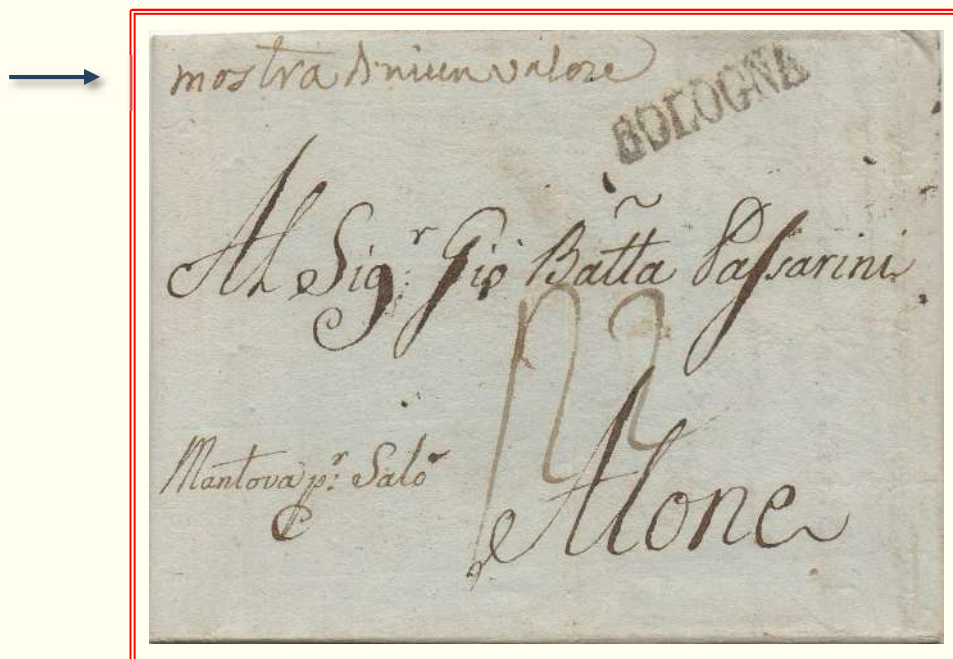 mostra di niun valore
BOLOGNA
Al Sig.r Gio Batta Passarini
Mantova p.r Salò
Alone